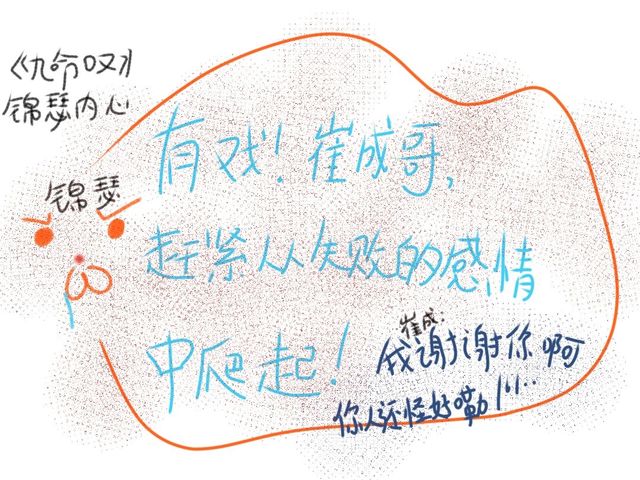 《九命叹》
锦瑟内心
锦瑟
有戏！崔成哥，
赶紧从失败的感情
中爬起！
崔成：
我谢谢你啊
你人还怪好嘞！！！……